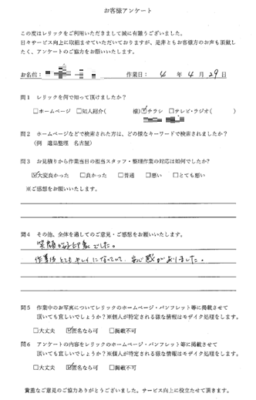 お客様アンケート
この度はレリックをご利用いただきまして誠に有難うございました。
日々サービス向上に取組ませていただいておりますが、是非ともお客様方のお声も頂戴し
たく、アンケートのご協力をお願いいたします。
お名前： 作業日： 4 年 4 月 29 日
問1 レリックを何で知って頂けましたか？
□ホームページ □知人紹介( 様) ☑チラシ □テレビ・ラジオ( )
問2 ホームページなどで検索された方は、どの様なキーワードで検索されましたか？
(例 遺品整理 名古屋)
問3 お見積りから作業当日の担当スタッフ・整理作業の対応は如何でしたか？
☑大変良かった □良かった □普通 □悪い □とても悪い
※ご感想をお願いいたします。
問4 その他、全体を通してのご意見・ご感想をお願いいたします。
笑顔でした。
作業は になっていて、 感がありました。
問5 作業中のお写真についてレリックのホームページ・パンフレット等に掲載させて
頂いても宜しいでしょうか？※個人が特定される様な情報はモザイク処理をします。
□大丈夫 ☑匿名なら可 □掲載不可
問6 アンケートの内容をレリックのホームページ・パンフレット等に掲載させて
頂いても宜しいでしょうか？※個人が特定される様な情報はモザイク処理をします。
□大丈夫 ☑匿名なら可 □掲載不可
貴重なご意見のご協力ありがとうございました。サービス向上に役立たせて頂きます。